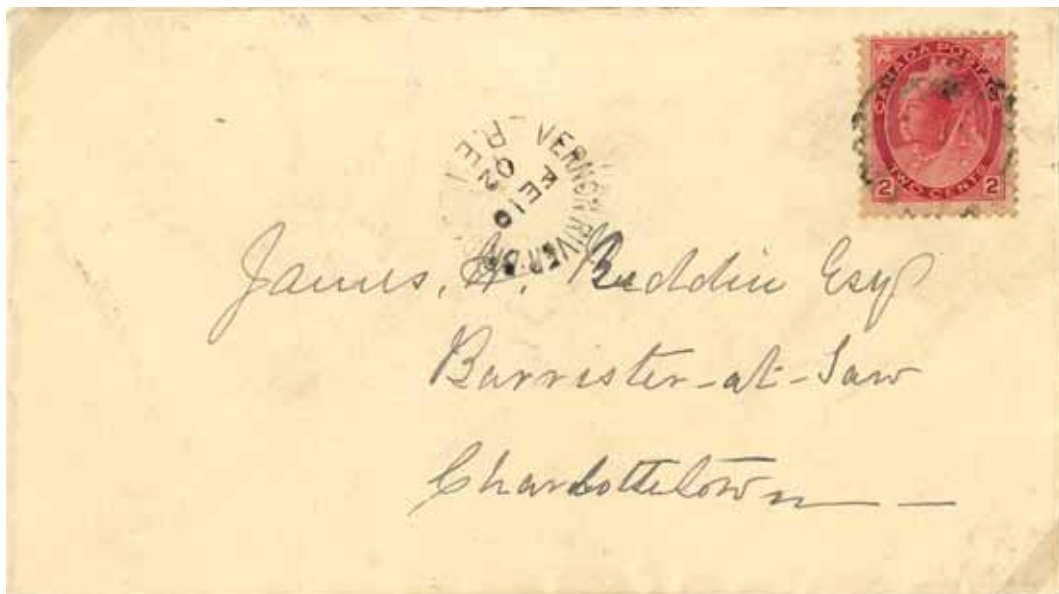 CANADA POSTAGE
2 TWO CENTS 2
VERNON RIVER BR
P.E.I.
FE 10
02
James, H. Reddin Esq
Barrister-at-Law
Charlottetown